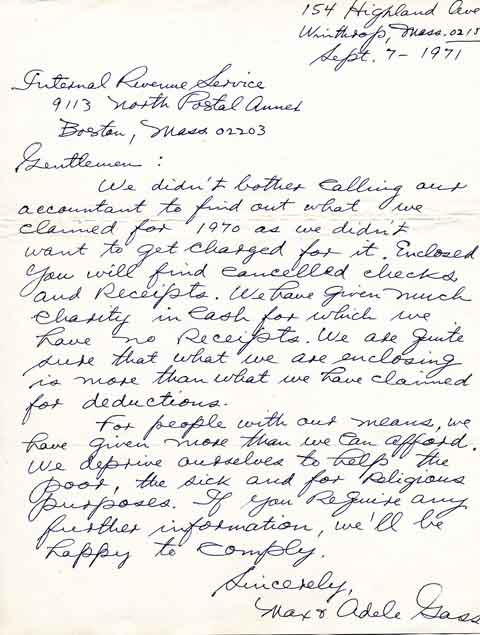 154 Highland Ave
Winthrop, Mass. 0215
Sept. 7 - 1971
Internal Revenue Service
9113 North Postal Annex
Boston, Mass 02203
Gentlemen :
We didn't bother calling our
accountant to find out what we
claimed for 1970 as we didn't
want to get charged for it. Enclosed
you will find cancelled checks
and Receipts. We have given much
charity in cash for which we
have no Receipts. We are quite
sure that what we are enclosing
is more than what we have claimed
for deductions.
For people with our means, we
have given more than we can afford.
We deprive ourselves to help the
poor, the sick and for religious
purposes. If you Require any
further information, we'll be
happy to comply.
Sincerely,
Max & Adele Gass